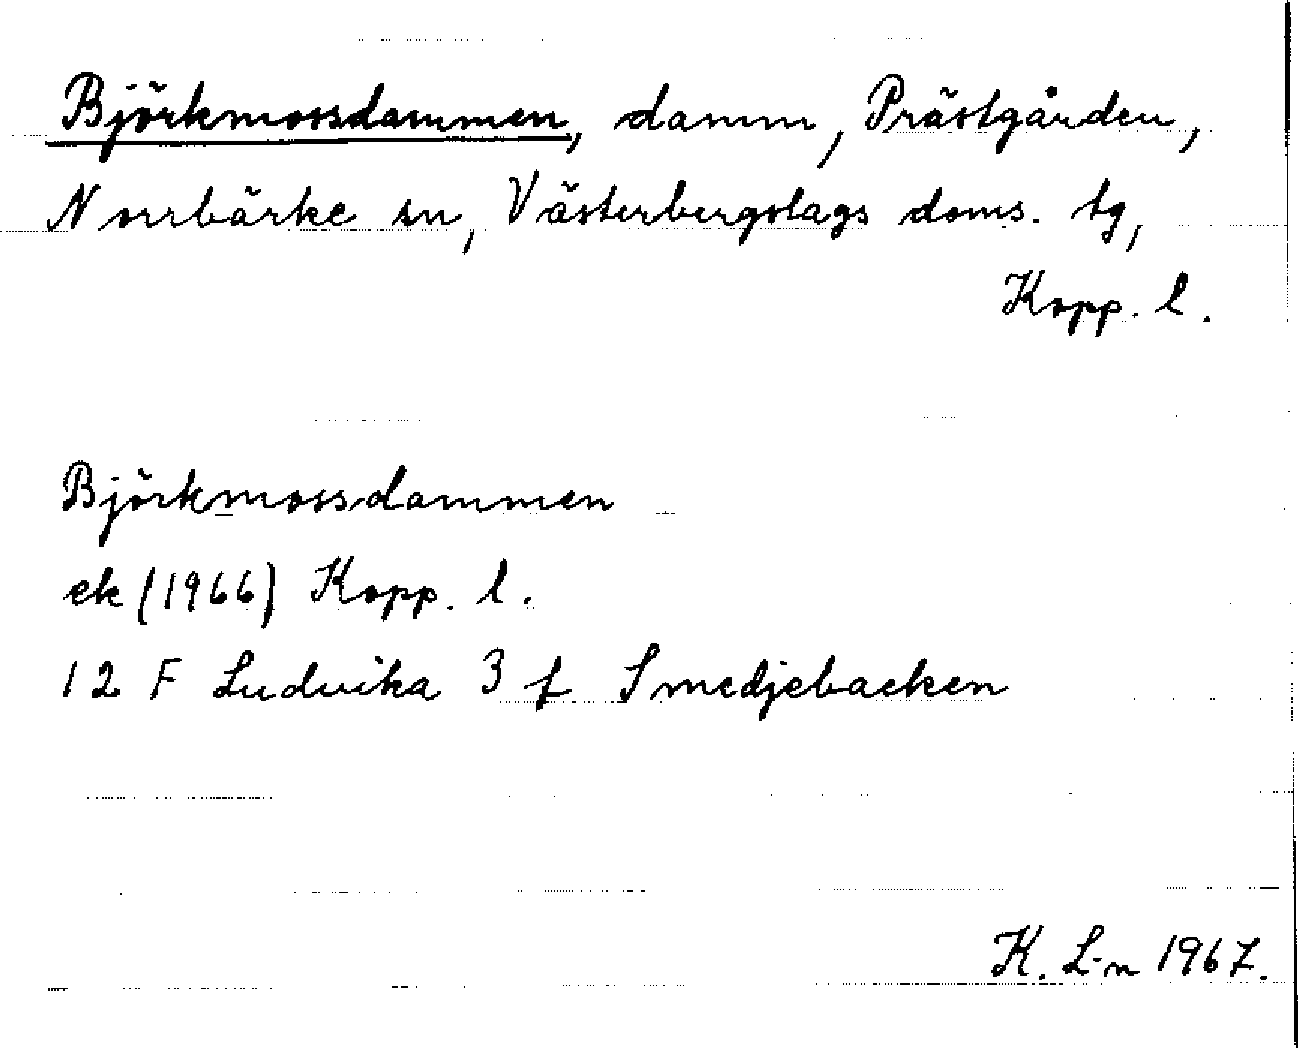 Björkmossdammen, damm, Prästgården,
Norrbärke sn, Västerbergslags doms. tg,
Kopp. l.
Björkmossdammen
ek (1966) Kopp. l.
12 F Ludvika 3 f Smedjebacken
K. L-n 1967.